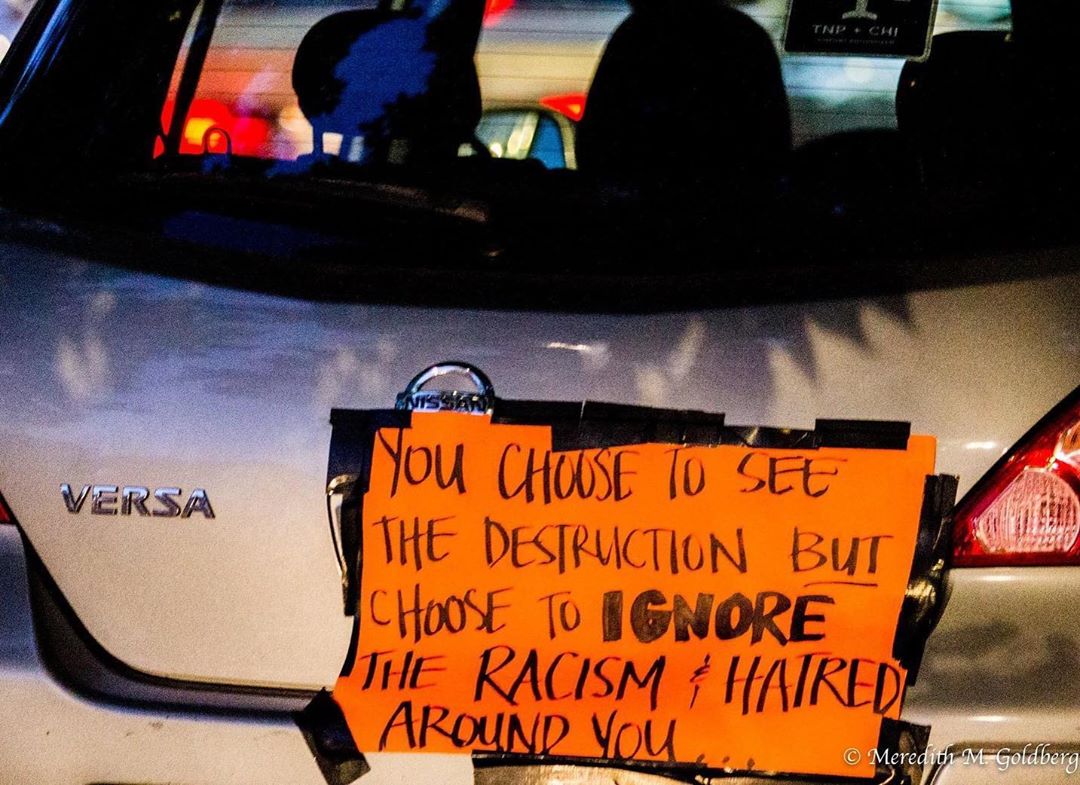 TNP + CHI
NISSAN
VERSA
YOU CHOOSE TO SEE
THE DESTRUCTION BUT
CHOOSE TO IGNORE
THE RACISM & HATRED
AROUND YOU....
© Meredith M. Goldberg